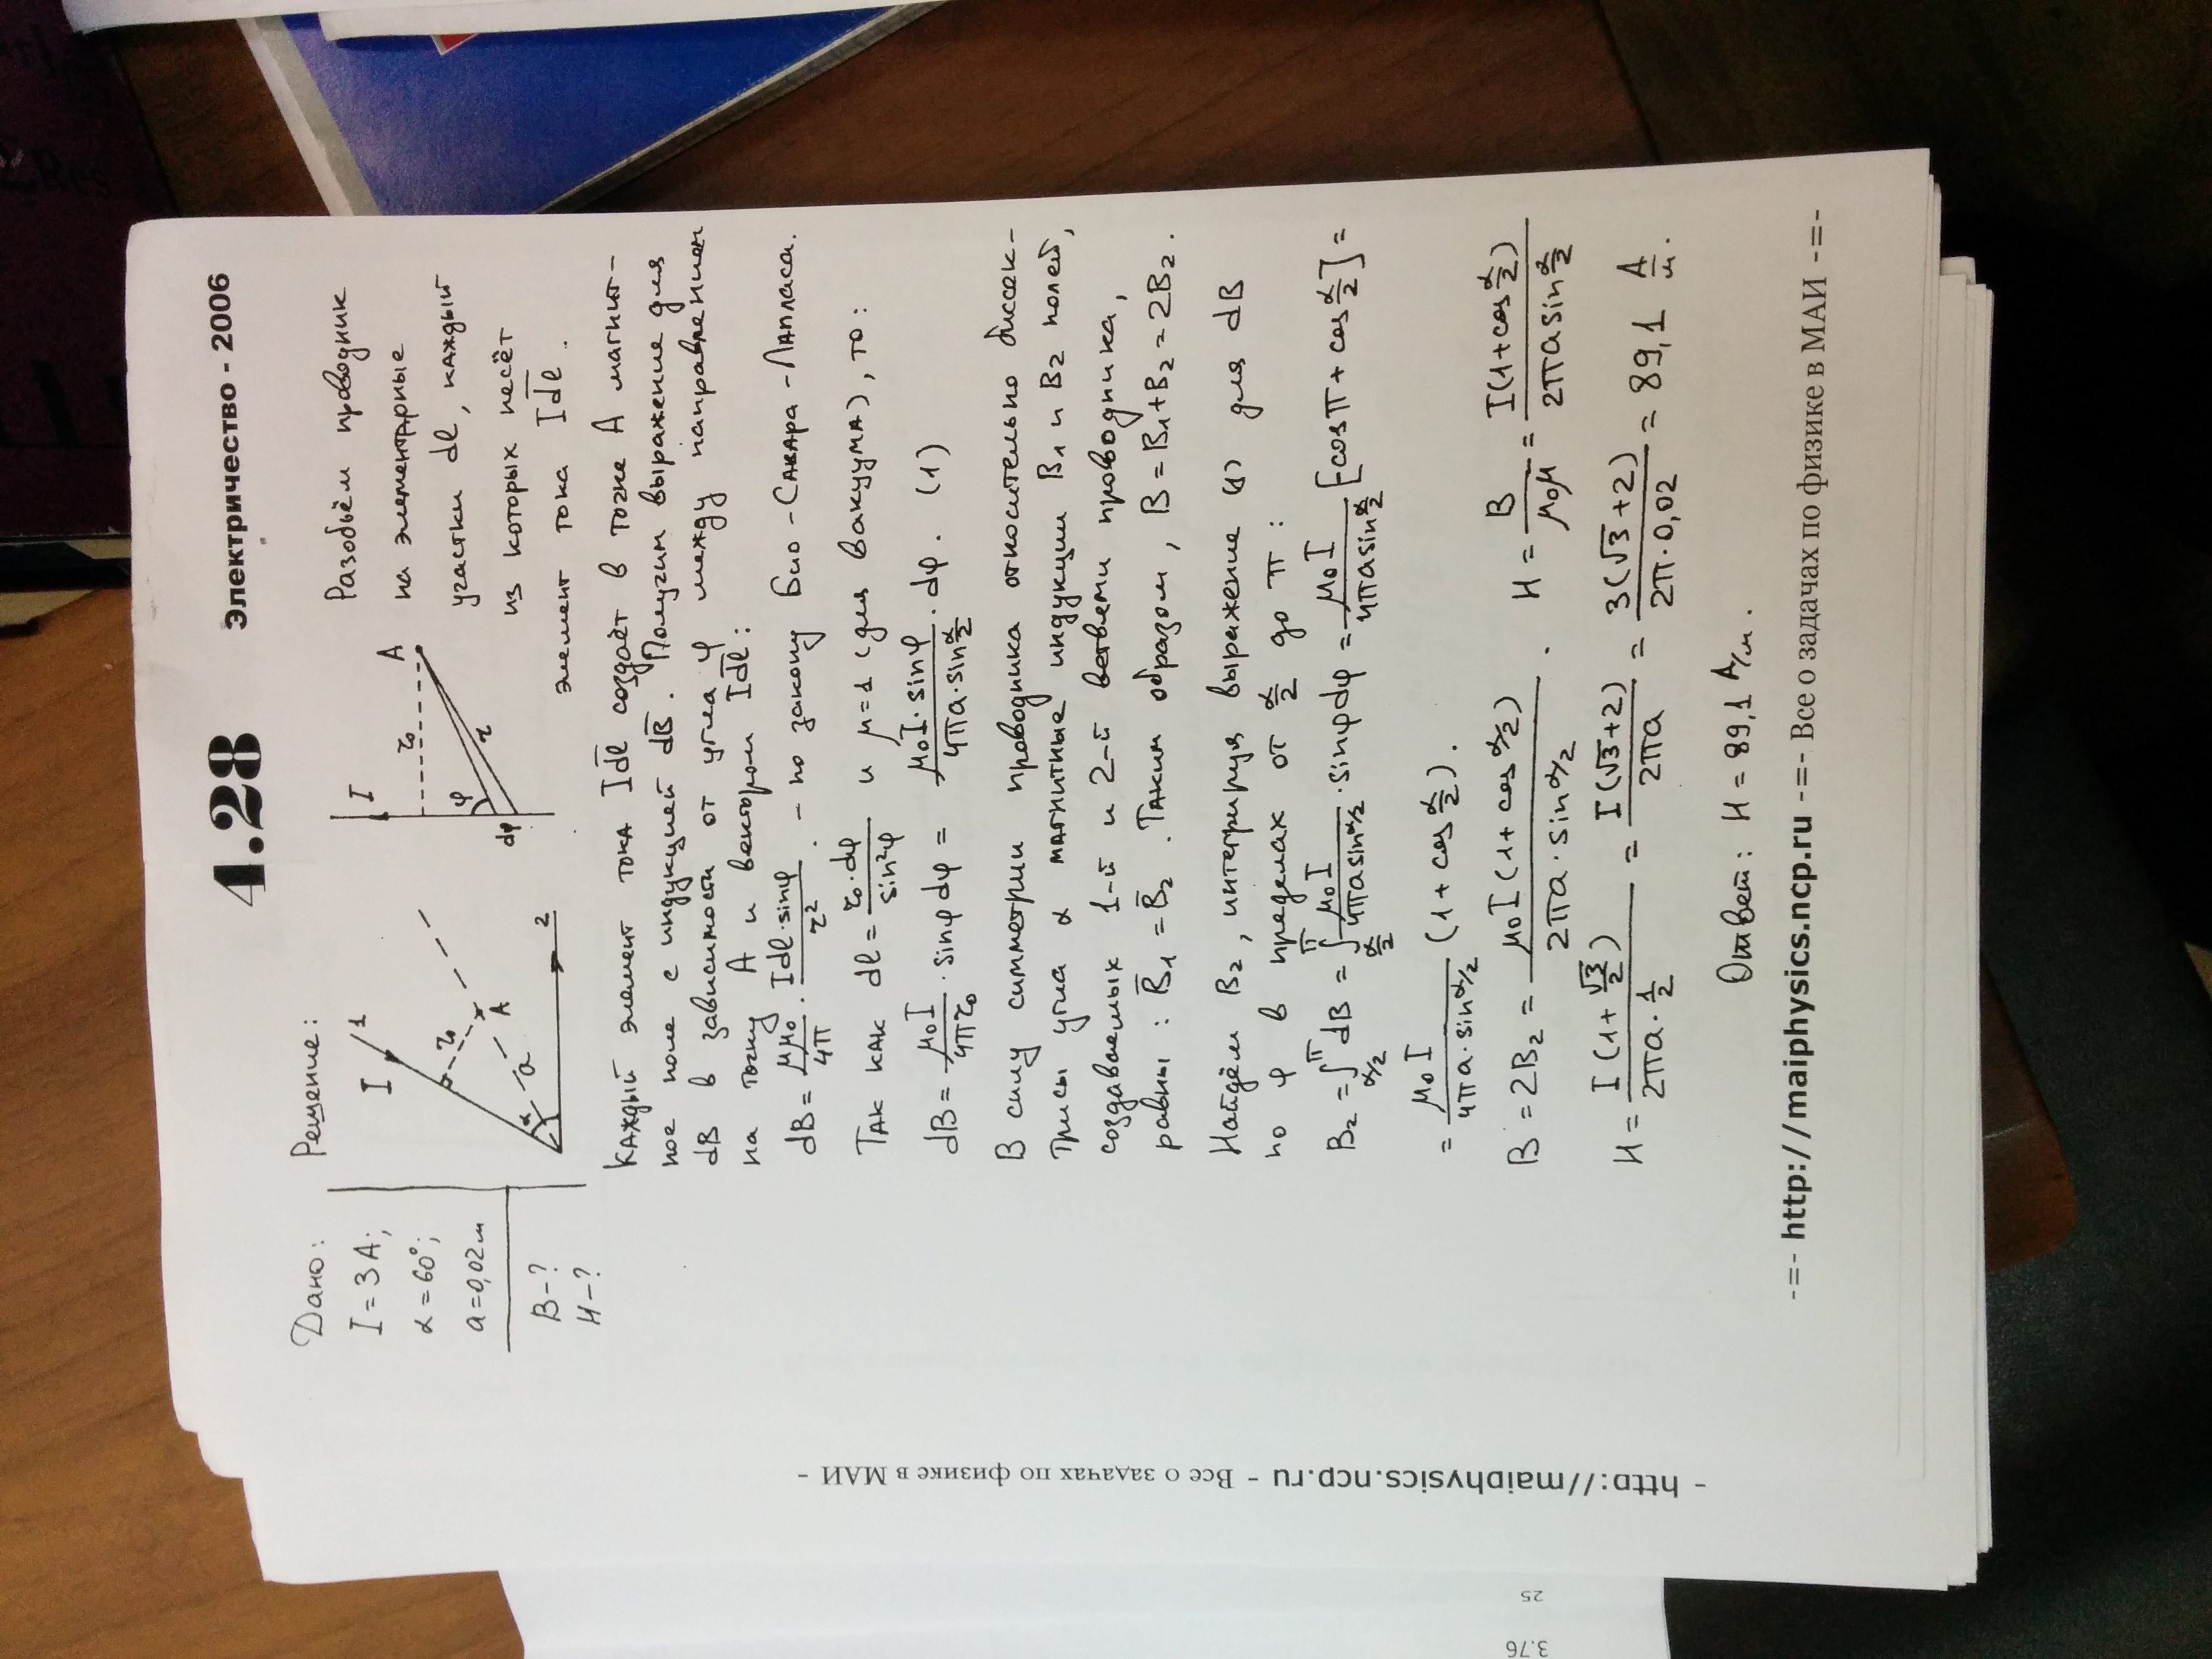 4.28 Электричество - 2006
Дано:
I = 3 А;
α = 60°;
a = 0,02 м
B - ?
H - ?
Решение:
I
1
r₀
A
a
α
2
I
r₀
A
φ
r
dφ
Разобьём проводник
на элементарные
участки dl, каждый
из которых несёт
элемент тока Idl̅.
Каждый элемент тока Idl̅ создаёт в точке A магнит-
ное поле с индукцией dB̅. Получим выражение для
dB в зависимости от угла φ между направлением
на точку A и вектором Idl̅:
dB = μμ₀/4π · Idl·sinφ/r². - по закону Био-Савара-Лапласа.
Так как dl = r₀·dφ/sin²φ и μ=1 (для вакуума), то:
dB = μ₀I/4πr₀ · sinφ dφ = μ₀I·sinφ/4πa·sin α/2 · dφ. (1)
В силу симметрии проводника относительно биссек-
трисы угла α магнитные индукции B₁ и B₂ полей,
создаваемых 1-й и 2-й ветвями проводника,
равны: B̅₁ = B̅₂. Таким образом, B = B₁ + B₂ = 2B₂.
Найдём B₂, интегрируя выражение (1) для dB
по φ в пределах от α/2 до π:
B₂ = ∫_{α/2}^{π} dB = ∫_{α/2}^{π} μ₀I/4πa sin α/2 · sinφ dφ = μ₀I/4πa sin α/2 [cosπ + cos α/2] =
= μ₀I/4πa·sin α/2 (1 + cos α/2).
B = 2B₂ = μ₀I(1 + cos α/2)/2πa·sin α/2. H = B/μ₀μ = I(1+cos α/2)/2πa sin α/2
H = I(1 + √3/2)/2πa·1/2 = I(√3+2)/2πa = 3(√3+2)/2π·0,02 = 89,1 А/м.
Ответ: H = 89,1 А/м.
-=- http://maiphysics.ncp.ru -=- Все о задачах по физике в МАИ -=-
- http://maiphysics.ncp.ru - Все о задачах по физике в МАИ -
25
3.76